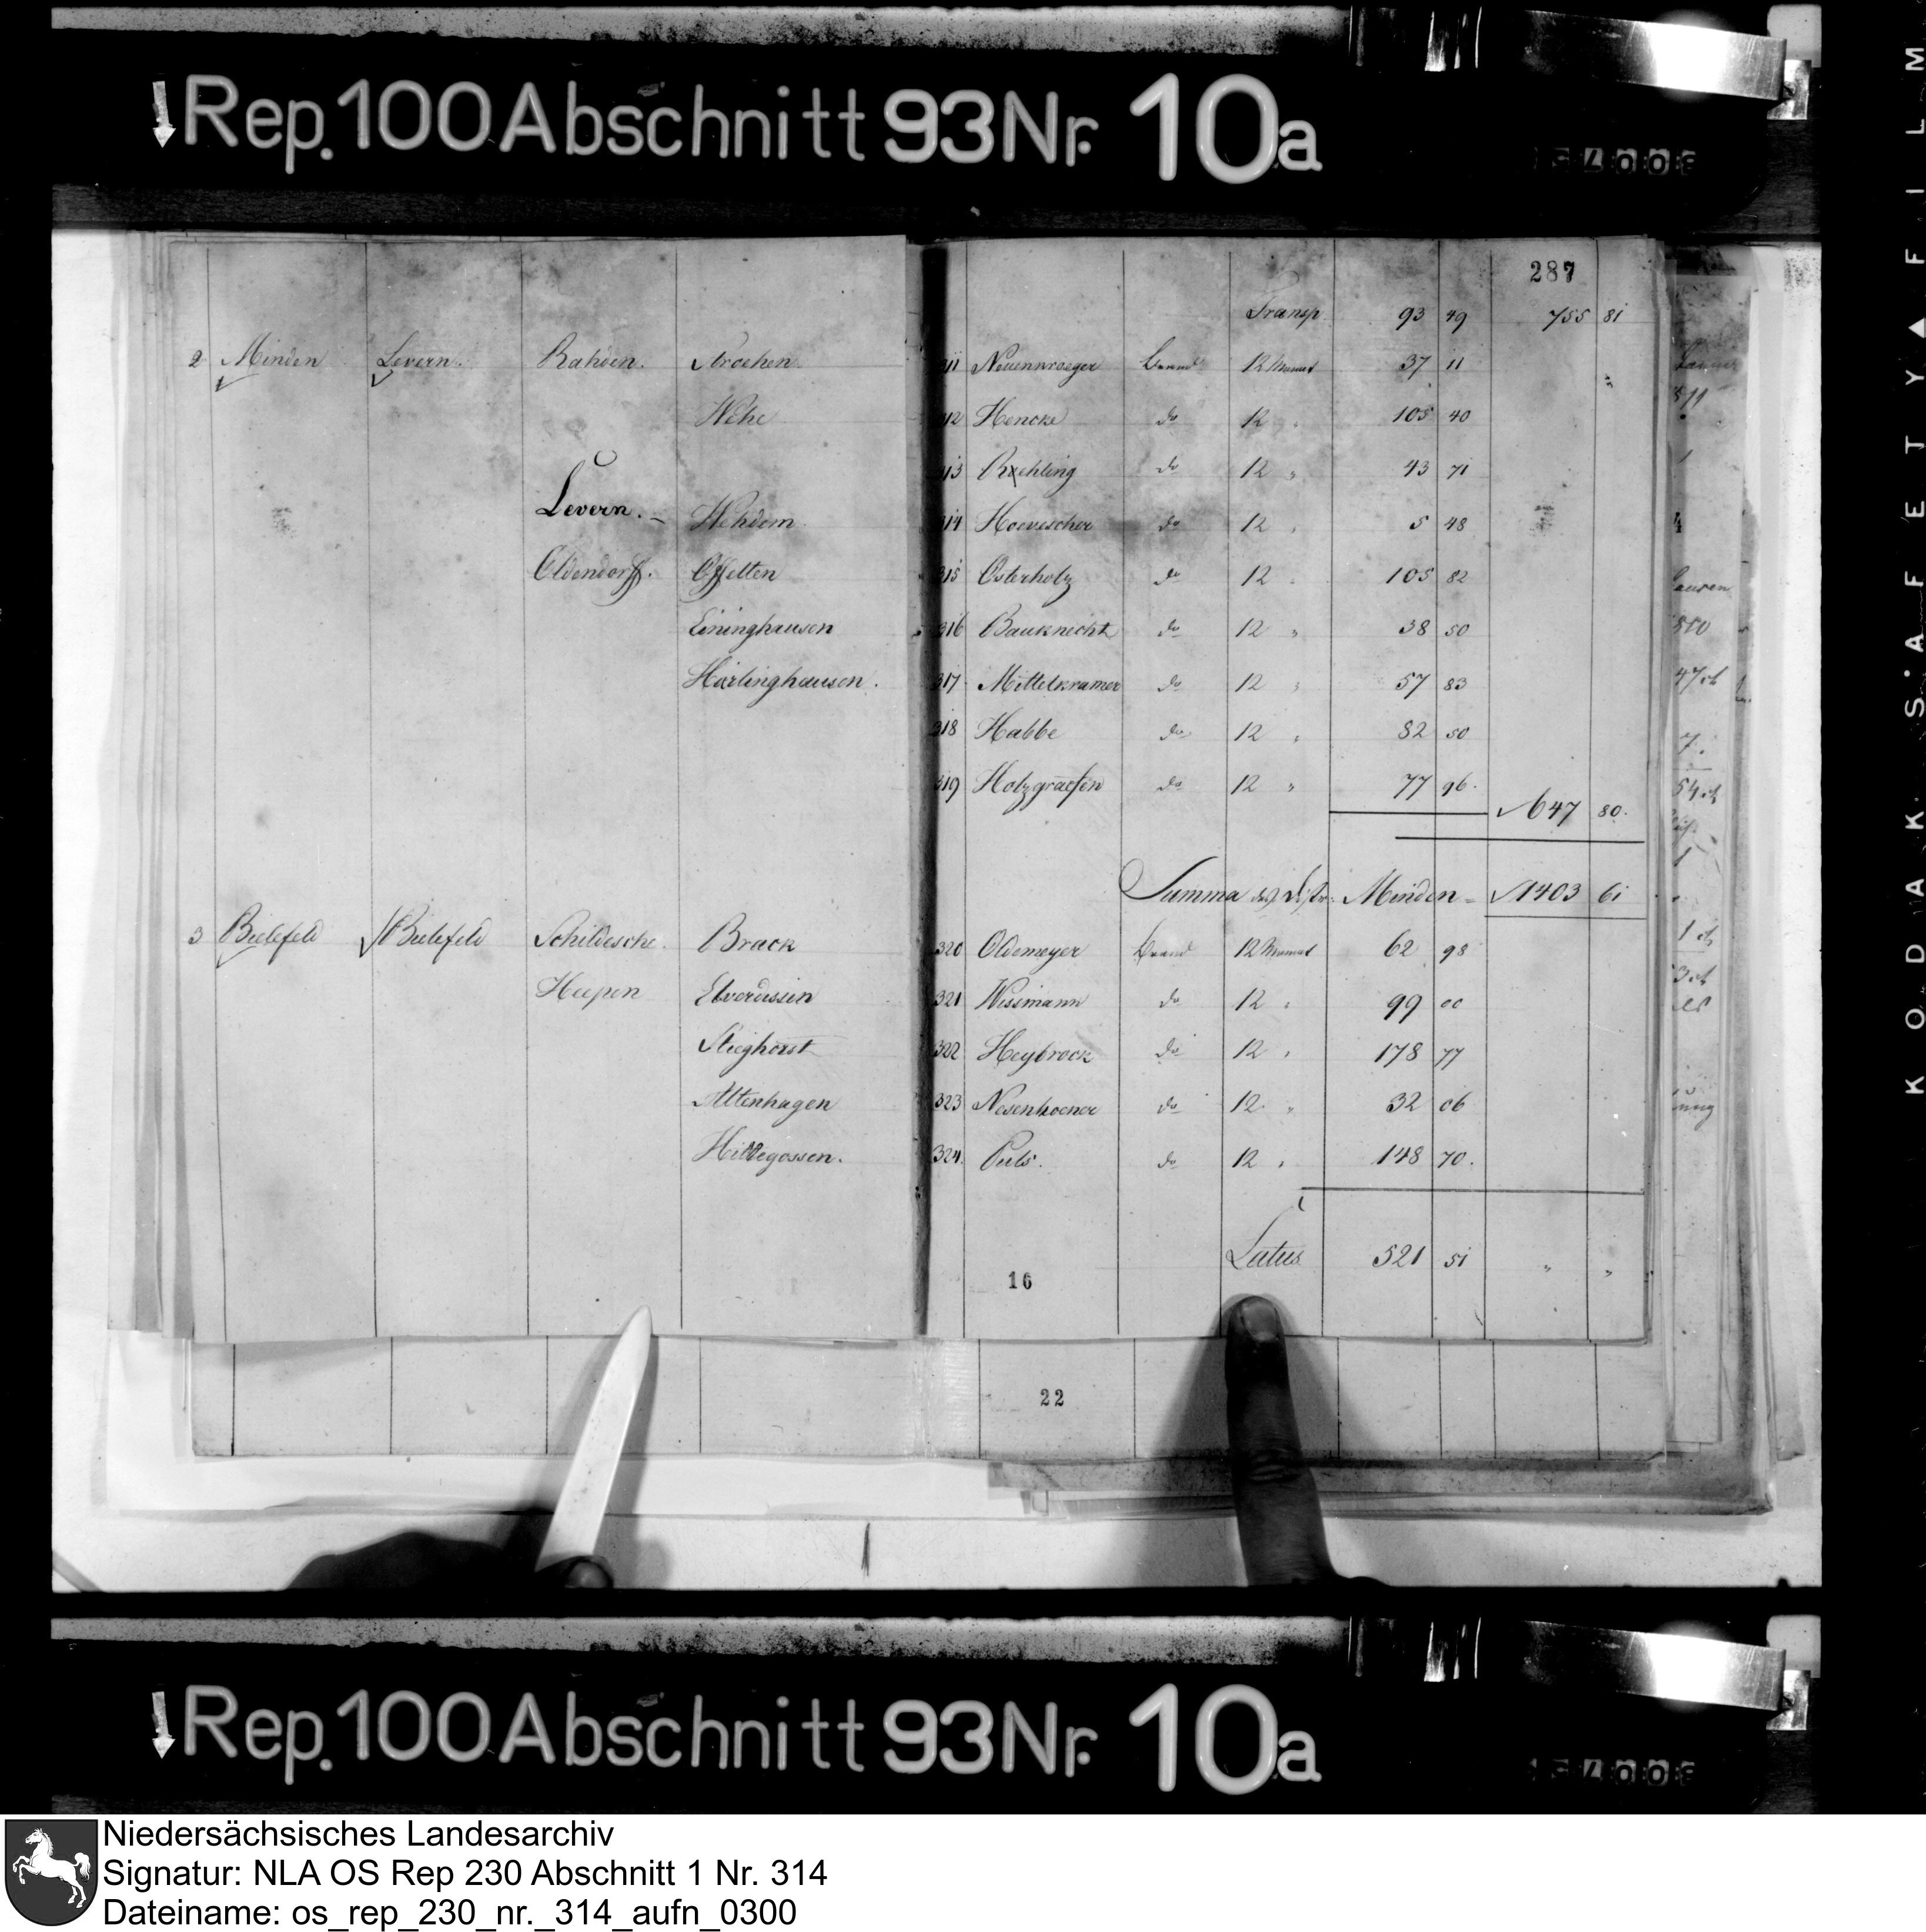 Rep. 100 Abschnitt 93 Nr. 10a
287
Transp 93 49 755 81
2 Minden Levern. Rahden. Stroehen 311 Neuenkroeger 12 Monat 37 11
Wehe 312 Hencke do 12 " 105 40
313 Roehling do 12 " 43 71
Levern. Wehdem 314 Hoevescher do 12 " 5 48
Oldendorf. Offelten 315 Osterholz do 12 " 105 82
Eininghausen 316 Bauknecht do 12 " 38 50
Harlinghausen. 317 Mittelkramer do 12 " 57 83
318 Habbe do 12 " 82 50
319 Holzgraefen do 12 " 77 96.
647 80.
Summa des Distr: Minden = 1403 61
3 Bielefeld Bielefeld Schildesche. Brack 320 Oldemeyer 12 Monat 62 98
Heepen Elverdissen 321 Wissmann do 12 " 99 00
Stieghorst 322 Heybrock do 12 " 178 77
Altenhagen 323 Nesenhoener do 12 " 32 06
Hillegossen. 324. Puls. do 12 " 148 70.
Latus 521 51 " "
16
22
KODAK SAFETY FILM
Rep. 100 Abschnitt 93 Nr. 10a
Niedersächsisches Landesarchiv
Signatur: NLA OS Rep 230 Abschnitt 1 Nr. 314
Dateiname: os_rep_230_nr._314_aufn_0300